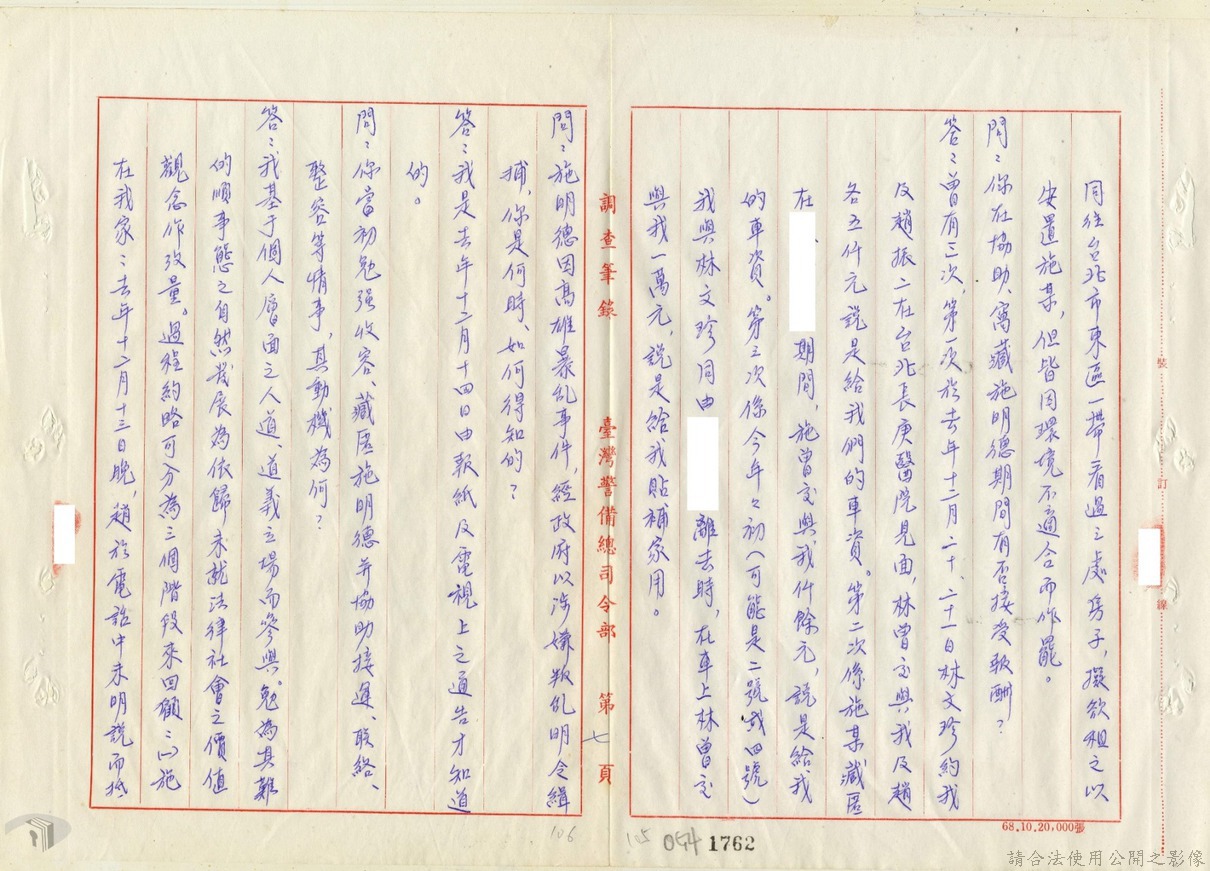 同往台北市東區一帶看過三處房子,擬欲租之以
安置施某,但皆因環境不適合而作罷。
問:你在協助、窩藏施明德期間有否接受報酬?
答:曾有三次,第一次於去年十二月二十、二十一日林文珍約我
及趙振二在台北長庚醫院見面,林曾交與我及趙
各五仟元說是給我們的車資。第二次係施某藏匿
在 期間,施曾交與我仟餘元,說是給我
的車資。第三次係今年々初(可能是二號或四號)
我與林文珍同由 離去時,在車上林曾交
與我一萬元,說是給我貼補家用。
裝 訂 線
68.10.20,000張
105 054 1762
調查筆錄 臺灣警備總司令部 第七頁
問:施明德因高雄暴乱事件,經政府以涉嫌叛乱明令緝
捕,你是何時、如何得知的?
答:我是去年十二月十四日由報紙及電視上之通告才知道
的。
問:你當初勉强收容、藏匿施明德并協助接運、联絡、
整容等情事,其動機為何?
答:我基于個人層面之人道、道義立場而參與。勉為其難
的順事態之自然發展為依歸未就法律社會之價值
觀念作攷量。過程約略可分為三個階段來回顧:㈠施
在我家:去年十二月十三日晚,趙於電話中未明說而抵
106
請合法使用公開之影像